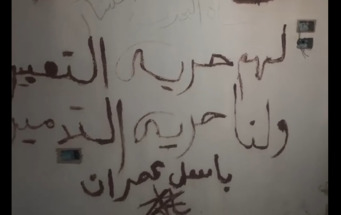 لهم حرية التعبير
ولنا حرية التدمير
باسل عمران